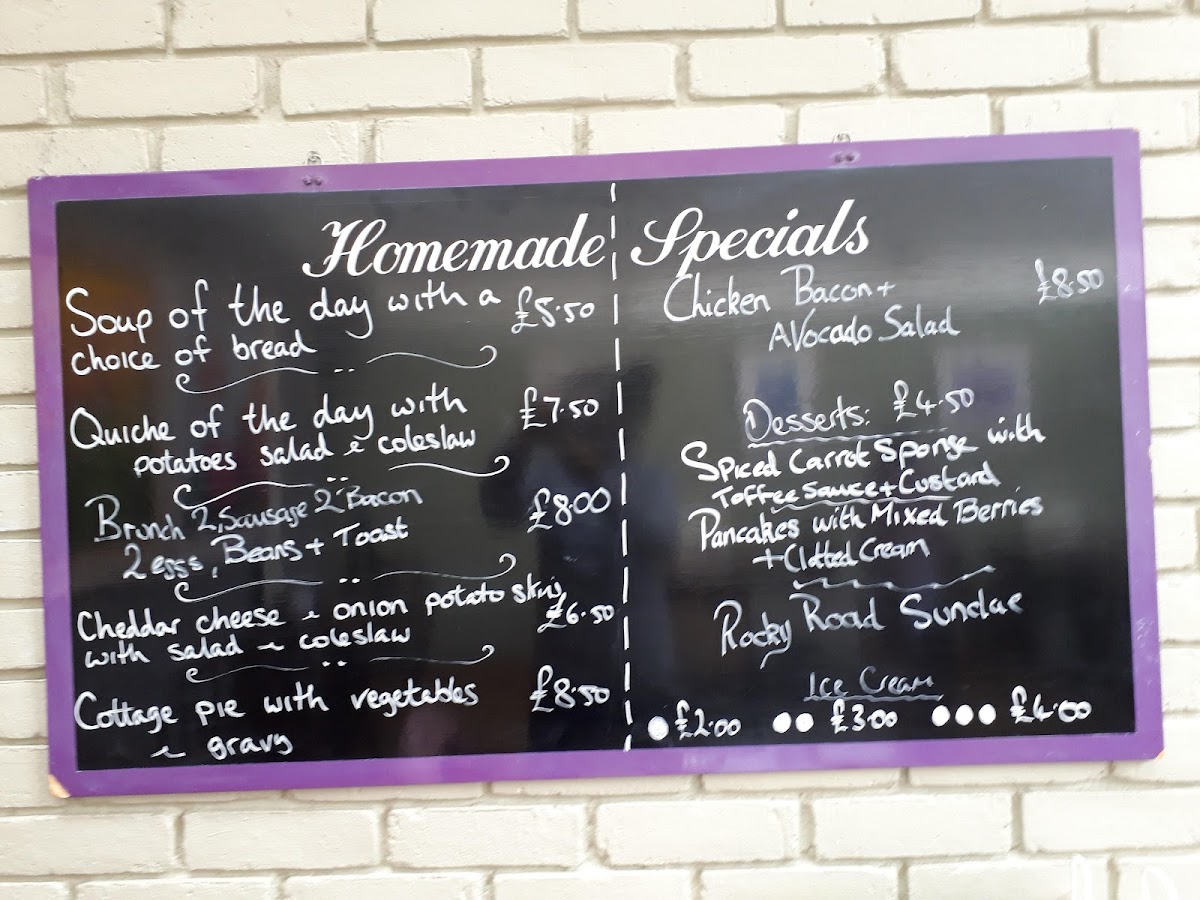 Homemade Specials
Soup of the day with a £5.50
choice of bread
Quiche of the day with £7.50
potatoes salad & coleslaw
Brunch 2 Sausage 2 Bacon £8.00
2 eggs, Beans + Toast
Cheddar cheese & onion potato skins
with salad & coleslaw £6.50
Cottage pie with vegetables £8.50
& gravy
Chicken Bacon + £8.50
Avocado Salad
Desserts: £4.50
Spiced Carrot Sponge with
Toffee Sauce + Custard
Pancakes with Mixed Berries
+ Clotted Cream
Rocky Road Sundae
Ice Cream
£2.00 £3.00 £4.00